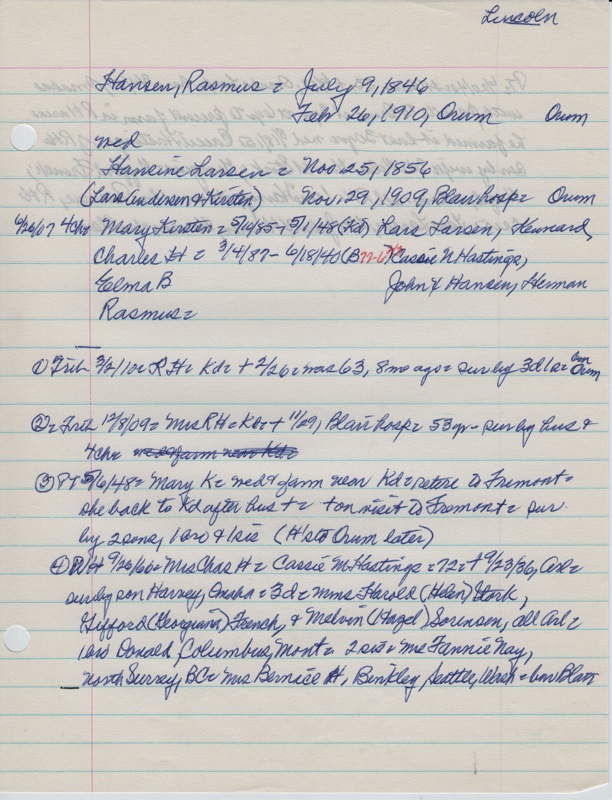 Lincoln
Hansen, Rasmus = July 9, 1846
Feb. 26, 1910, Orum Orum
med
Hansine Larsen = Nov 25, 1856
(Lars Andersen & Kirsten) Nov. 29, 1909, Blair hosp = Orum
4 ch = Mary Kirsten = 5/19/85 - 5/1/48 (Kd) Lars Larsen, Kennard,
Charles H = 3/4/87 - 6/18/40 (B Cassie N Hastings,
Elma B John X Hansen, Herman
Rasmus =
① Trib 3/2/10 = RH = Kd = + 2/26 = was 63, 8 mo ago = sur by 3d 1s = bur Orum
② = Trib 12/8/09 = Mrs RH = Kd = + 11/29, Blair hosp = 53 yr - sur by hus &
4 ch = med & farm near Kd =
③ PT 5/6/48 = Mary K = med & farm near Kd = retire to Fremont =
she back to Kd after hus + = + on visit to Fremont = sur
by 2 sons, 1 bro & 1 sis (H sto Orum later)
④ 9/26/60 = Mrs Chas H = Cassie M Hastings = 72 = + 9/23/36, Arl =
sur by son Harvey, Omaha = 3d = mmes Harold (Helen) Stork,
Gifford (Georgiana) French, & Melvin (Hazel) Sorensen, all Arl =
1 bro Donald, Columbus, Mont = 2 sis = Mrs Fannie Nay,
North Surrey, BC = Mrs Bernice H. Binkley, Seattle, Wash = bur Blair